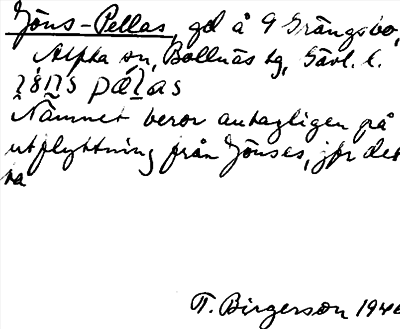 Jöns-Pellas, gd å 9 Grängsbo,
Alfta sn, Bollnäs tg, Gävl. l.
Namnet beror antagligen på
utflyttning från Jönses, jfr det
na
T. Birgerson 1946